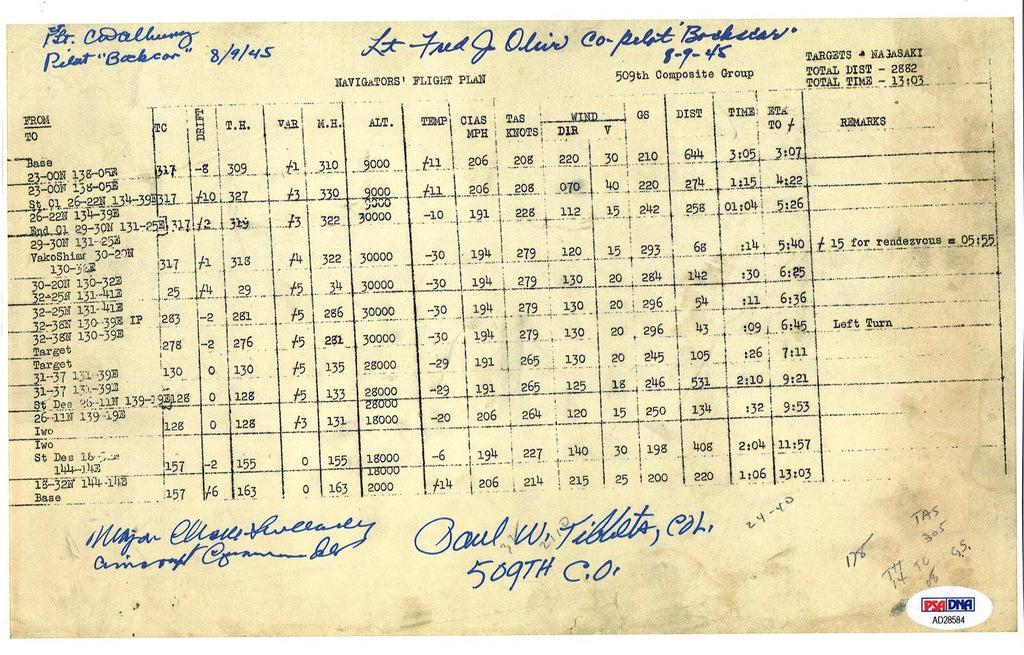 Flt. C.D. Albury
Pilot "Bockscar" 8/9/45
Lt Fred J Olivi Co-Pilot "Bockscar"
8-9-45
NAVIGATORS' FLIGHT PLAN
509th Composite Group
TARGETS - NAJASAKI
TOTAL DIST - 2882
TOTAL TIME - 13:03
FROM TO TC DRIFT T.H. VAR M.H. ALT. TEMP CIAS MPH TAS KNOTS WIND DIR V GS DIST TIME ETA TO / REMARKS
Base
23-00N 138-05E 317 -8 309 /1 310 9000 /11 206 208 220 30 210 644 3:05 3:07
23-00N 138-05E
St Cl 26-22N 134-39E 317 /10 327 /3 330 9000 /11 206 208 070 40 220 274 1:15 4:22
26-22N 134-39E
End Cl 29-30N 131-25E 317 /2 319 /3 322 30000 -10 191 228 112 15 242 258 01:04 5:26
29-30N 131-25E
VakoShima 30-20N
130-32E 317 /1 318 /4 322 30000 -30 194 279 120 15 293 68 :14 5:40 / 15 for rendezvous = 05:55
30-20N 130-32E
32-25N 131-41E 25 /4 29 /5 34 30000 -30 194 279 130 20 284 142 :30 6:25
32-25N 131-41E
32-38N 130-39E IP 283 -2 281 /5 286 30000 -30 194 279 130 20 296 54 :11 6:36
32-38N 130-39E
Target 278 -2 276 /5 281 30000 -30 194 279 130 20 296 43 :09 6:45 Left Turn
Target
31-37 131-39E 130 0 130 /5 135 28000 -29 191 265 130 20 245 105 :26 7:11
31-37 131-39E
St Des 26-11N 139-19E 128 0 128 /5 133 28000 -29 191 265 125 18 246 531 2:10 9:21
26-11N 139-19E
Iwo 128 0 128 /3 131 28000 18000 -20 206 264 120 15 250 134 :32 9:53
Iwo
St Des 18-
144-14E 157 -2 155 0 155 18000 -6 194 227 140 30 198 408 2:04 11:57
18-32N 144-14E
Base 157 /6 163 0 163 18000 2000 /14 206 214 215 25 200 220 1:06 13:03
Major Charles Sweeney
Aircraft Commander
Paul W. Tibbets, COL.
509TH C.O.
24-40
TAS
305
G.S.
TH TC
14
PSA DNA
AD28584